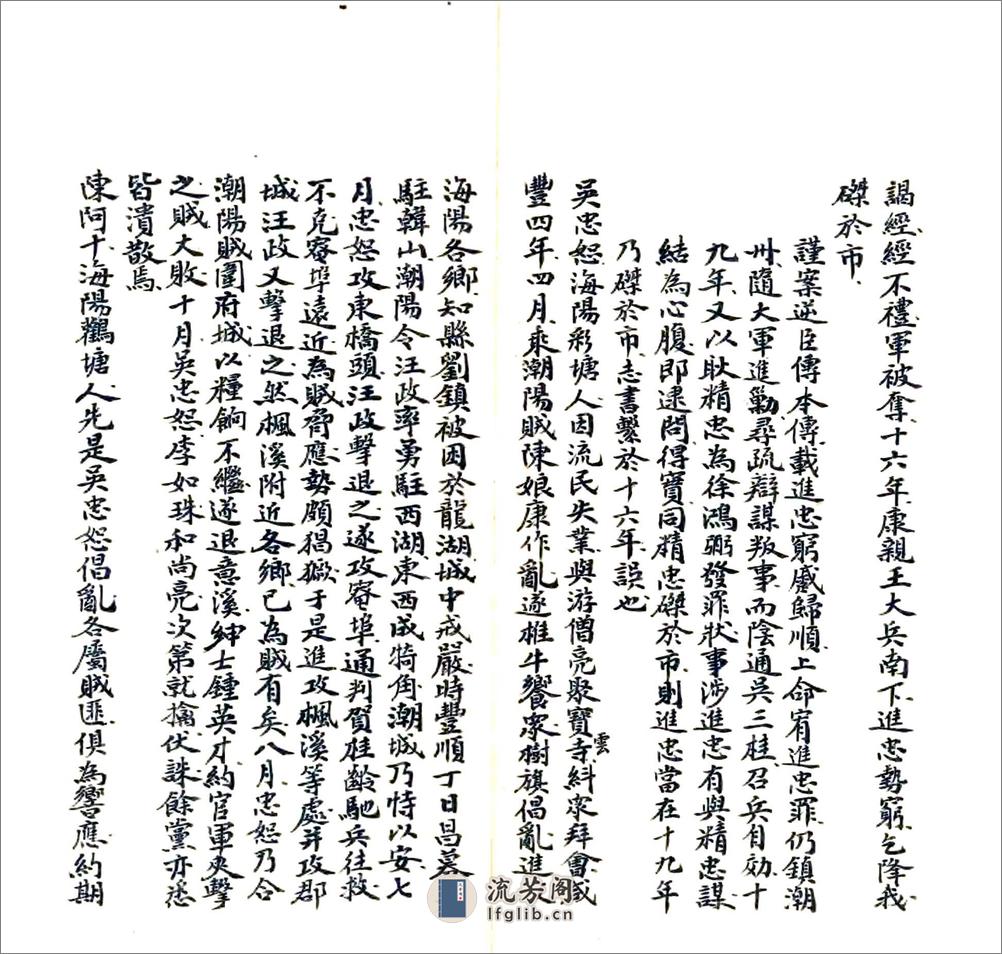 謁經經不禮軍被奪十六年康親王大兵南下進忠勢窮乞降我
磔於市
謹案逆臣傳本傳載進忠窮蹙歸順上命宥進忠罪仍鎮潮
州隨大軍進勦尋疏辯謀叛事而陰通吳三桂召兵自効十
九年又以耿精忠為徐鴻弼發罪狀事涉進忠有與精忠謀
結為心腹即逮問得實同精忠磔於市則進忠當在十九年
乃磔於市志書繫於十六年誤也
吳忠恕海陽彩塘人因流民失業與游僧亮聚寶雲寺糾眾拜會咸
豐四年四月乘潮陽賊陳娘康作亂遂椎牛饗眾樹旗倡亂進
海陽各鄉知縣劉鎮被困於龍湖城中戒嚴時豐順丁日昌募
駐韓山潮陽令汪政率勇駐西湖東西成犄角潮城乃恃以安七
月忠恕攻東橋頭汪政擊退之遂攻菴埠通判賀桂齡馳兵往救
不克菴埠遠近為賊脅應勢頗猖獗于是進攻楓溪等處并攻郡
城汪政又擊退之然楓溪附近各鄉已為賊有矣八月忠恕乃合
潮陽賊圍府城以糧餉不繼遂退意溪紳士鍾英才約官軍夾擊
之賊大敗十月吳忠恕李如珠和尚亮次第就擒伏誅餘黨亦悉
皆潰散焉
陳阿十海陽鸛塘人先是吳忠恕倡亂各屬賊匪俱為響應約期
流芳阁
lfglib.cn